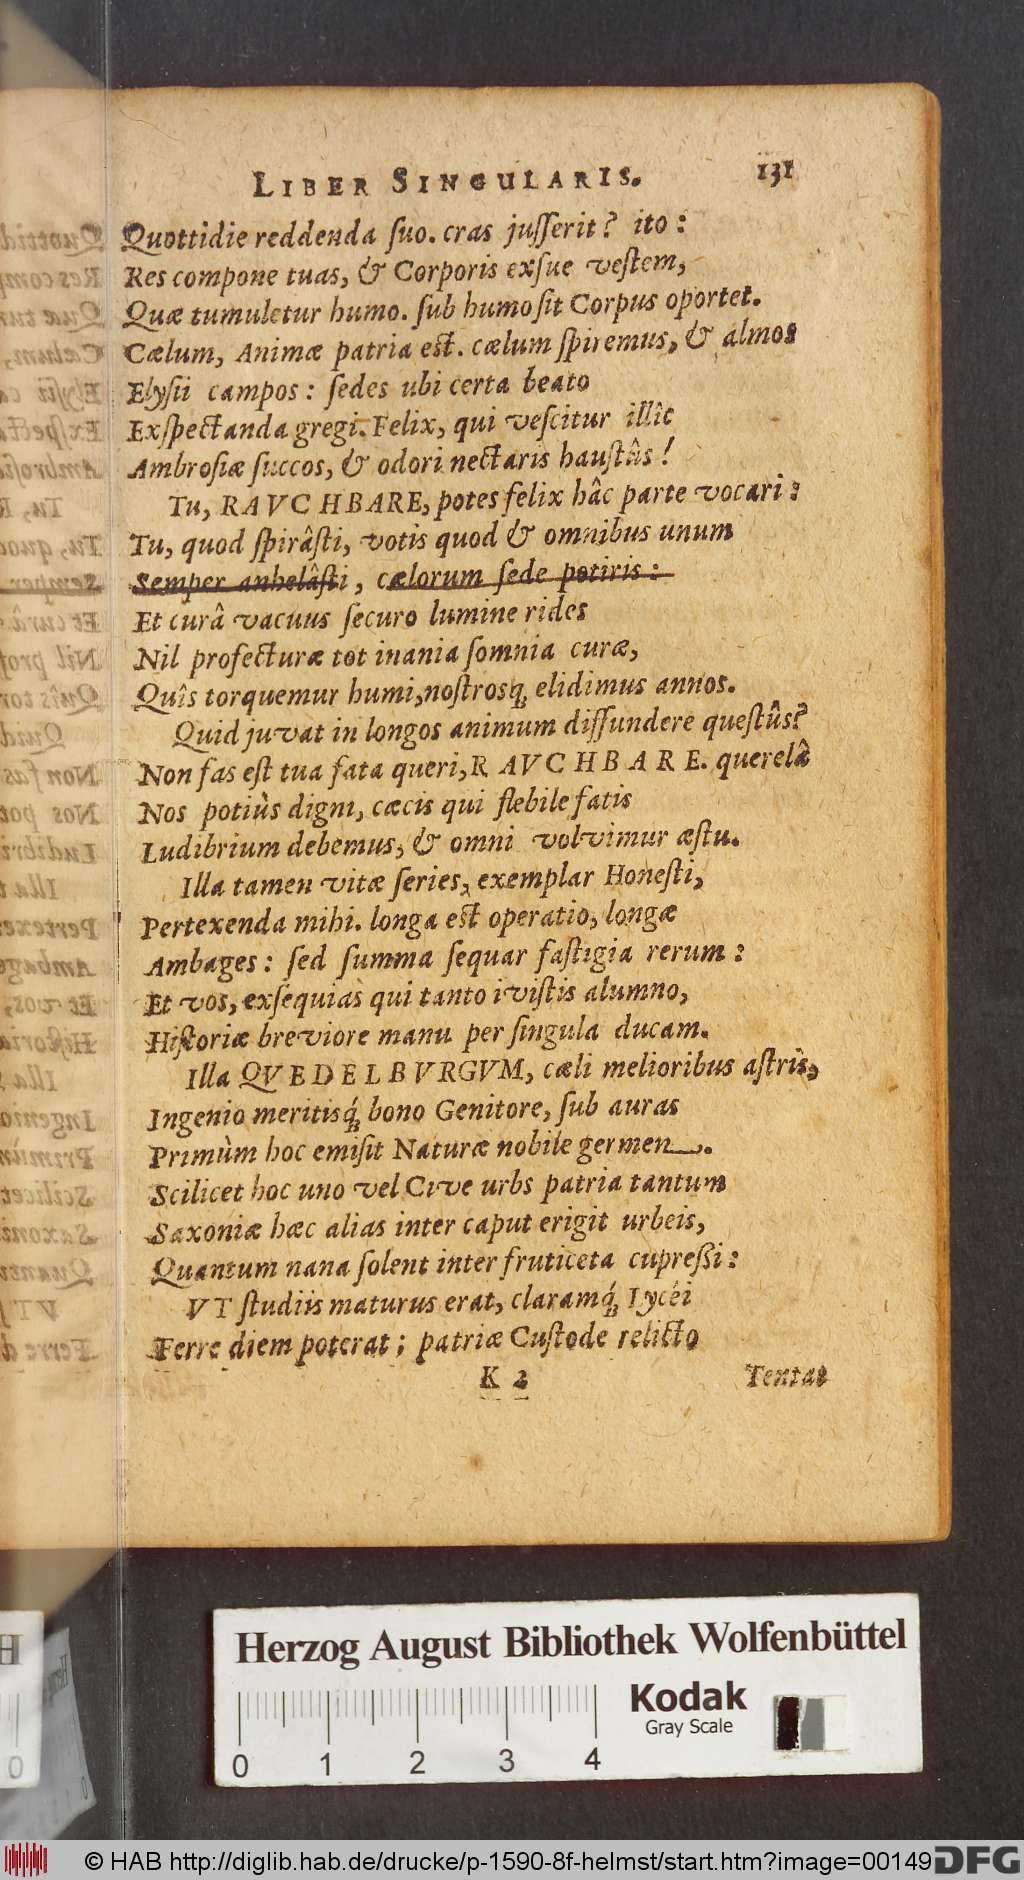 LIBER SINGULARIS. 131
Quottidie reddenda ſuo. cras juſſerit? ito:
Res compone tuas, & Corporis exſue veſtem,
Quæ tumuletur humo. ſub humo ſit Corpus oportet.
Cælum, Animæ patria eſt. cælum ſpiremus, & almos
Elyſii campos: ſedes ubi certa beato
Exſpectanda gregi. Felix, qui veſcitur illîc
Ambroſiæ ſuccos, & odori nectaris hauſtûs!
Tu, RAVCHBARE, potes felix hâc parte vocari:
Tu, quod ſpirâſti, votis quod & omnibus unum
Semper anhelâſti, cælorum ſede potiris:
Et curâ vacuus ſecuro lumine rides
Nil profecturæ tot inania ſomnia curæ,
Quîs torquemur humi, noſtrosq; elidimus annos.
Quid juvat in longos animum diffundere queſtûs?
Non fas eſt tua fata queri, RAVCHBARE. querelâ
Nos potiùs digni, cæcis qui flebile fatis
Ludibrium debemus, & omni volvimur æſtu.
Illa tamen vitæ ſeries, exemplar Honeſti,
Pertexenda mihi. longa eſt operatio, longæ
Ambages: ſed ſumma ſequar faſtigia rerum:
Et vos, exſequias qui tanto iviſtis alumno,
Hiſtoriæ breviore manu per ſingula ducam.
Illa QVEDELBVRGVM, cæli melioribus aſtris,
Ingenio meritisq́; bono Genitore, ſub auras
Primùm hoc emiſit Naturæ nobile germen.
Scilicet hoc uno vel Cive urbs patria tantum
Saxoniæ hæc alias inter caput erigit urbeis,
Quantum nana ſolent inter fruticeta cupreßi:
VT ſtudiis maturus erat, claramq́; Lycéi
Ferre diem poterat; patriæ Cuſtode relicto
K 2 Tentat
Herzog August Bibliothek Wolfenbüttel
Kodak
Gray Scale
0 1 2 3 4
© HAB http://diglib.hab.de/drucke/p-1590-8f-helmst/start.htm?image=00149 DFG